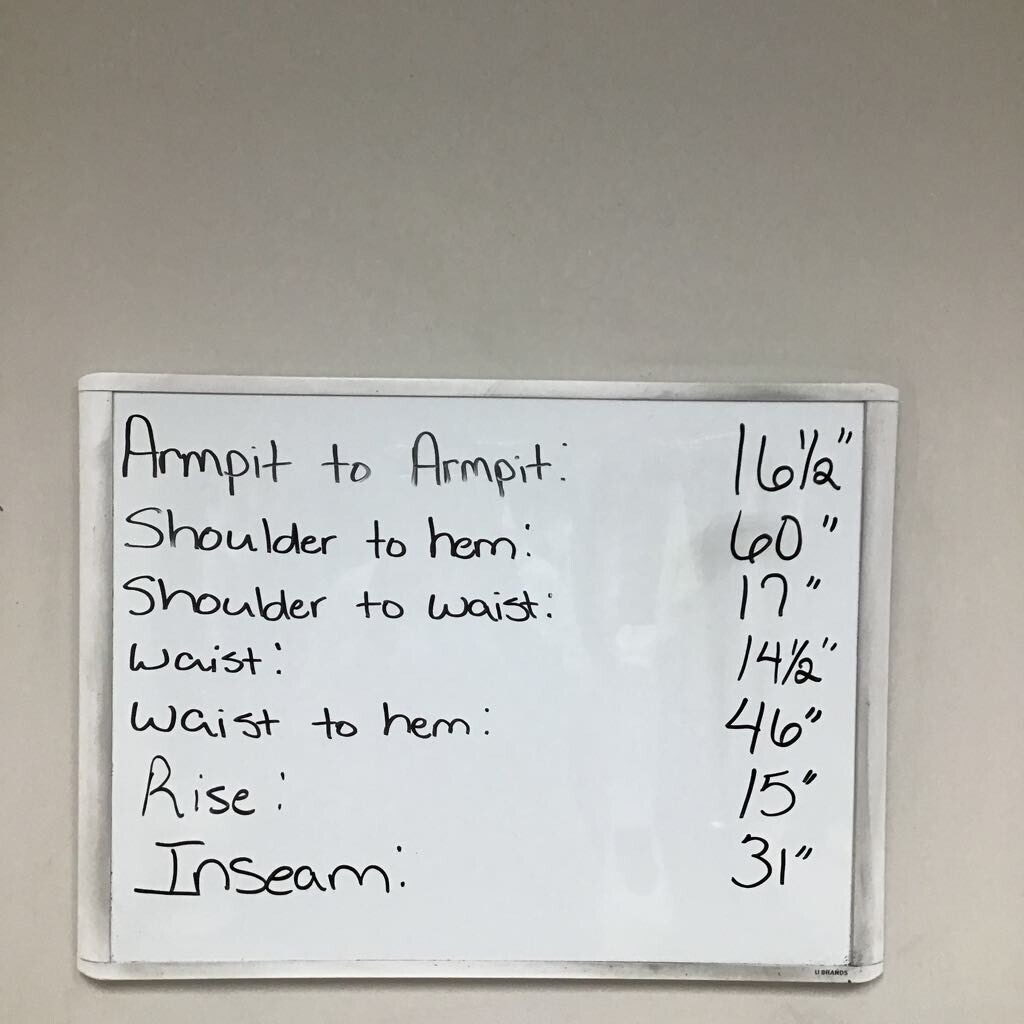 Armpit to Armpit: 16½"
Shoulder to hem: 60"
Shoulder to waist: 17"
Waist: 14½"
Waist to hem: 46"
Rise: 15"
Inseam: 31"
U BRANDS